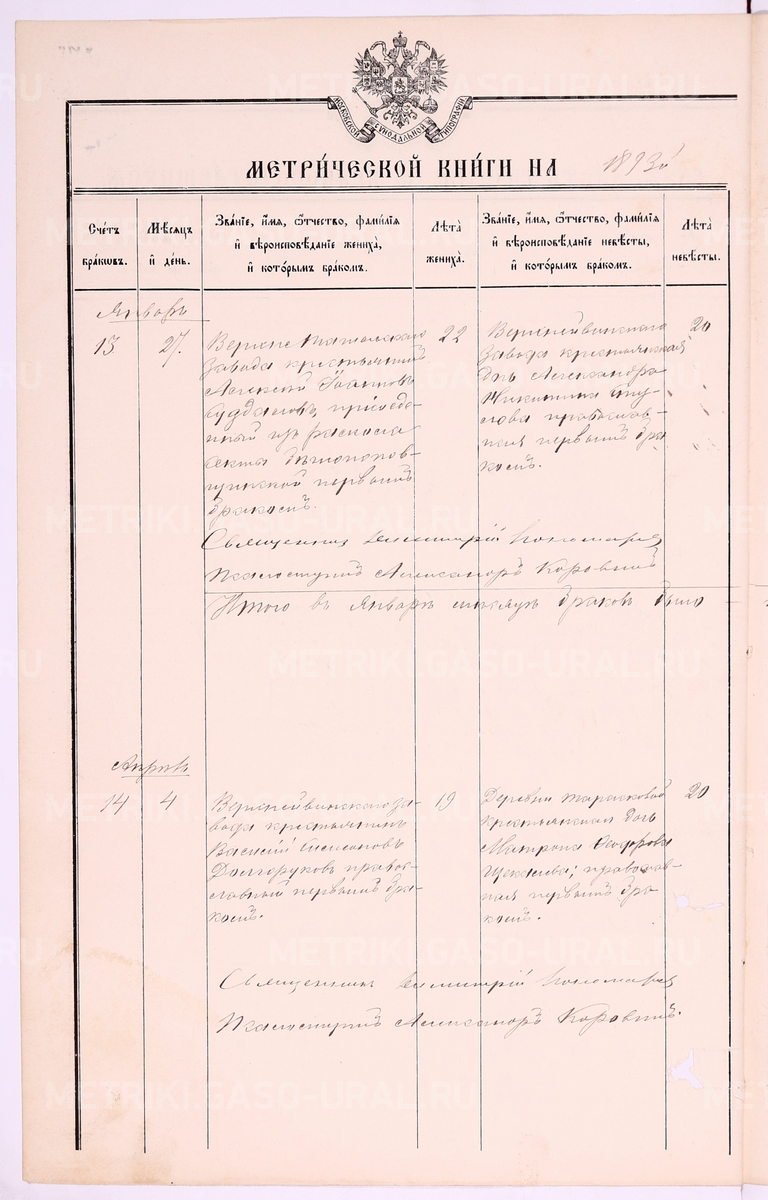 МОСКОВСКОЙ СѴНОДАЛЬНОЙ ТИПОГРАФІИ
МЕТРИ́ЧЕСКОЙ КНИ́ГИ НА 1893й
Сче́тъ бра́ковъ.
Мѣ́сяцъ и҆ де́нь.
Зва́нїе, и҆́мя, ѻ҆́тчество, фамі́лїя и҆ вѣроисповѣ́данїе жениха̀, и҆ кото́рымъ бра́комъ.
Лѣта̀ жениха̀.
Зва́нїе, и҆́мя, ѻ҆́тчество, фамі́лїя и҆ вѣроисповѣ́данїе невѣ́сты, и҆ кото́рымъ бра́комъ.
Лѣта̀ невѣ́сты.
Январь
13
27.
Верхне Тагильскаго
завода крестьянинъ
Алексѣй Іоанновъ
присоеди-
ненный изъ раскола
секты
первымъ
бракомъ.
22
Верхнейвинскаго
завода крестьянская
дчь Александра
Никитина
православ-
ная первымъ бра
комъ.
20
Священникъ Димитрій Пономаревъ
Псаломщикъ Александръ Коровинъ
Итого въ Январѣ мѣсяцѣ браковъ было
Апрѣль
14
4
Верхнейвинскаго за-
вода крестьянинъ
Василій Симеоновъ
Долгоруковъ право-
славный первымъ бра-
комъ.
19
Деревни Тарасковой
крестьянская дочь
Матрона Ѳеодорова
Щекалева; православ-
ная первымъ бра-
комъ.
20
Священникъ Димитрій Пономаревъ
Псаломщикъ Александръ Коровинъ.
METRIKI.GASO-URAL.RU